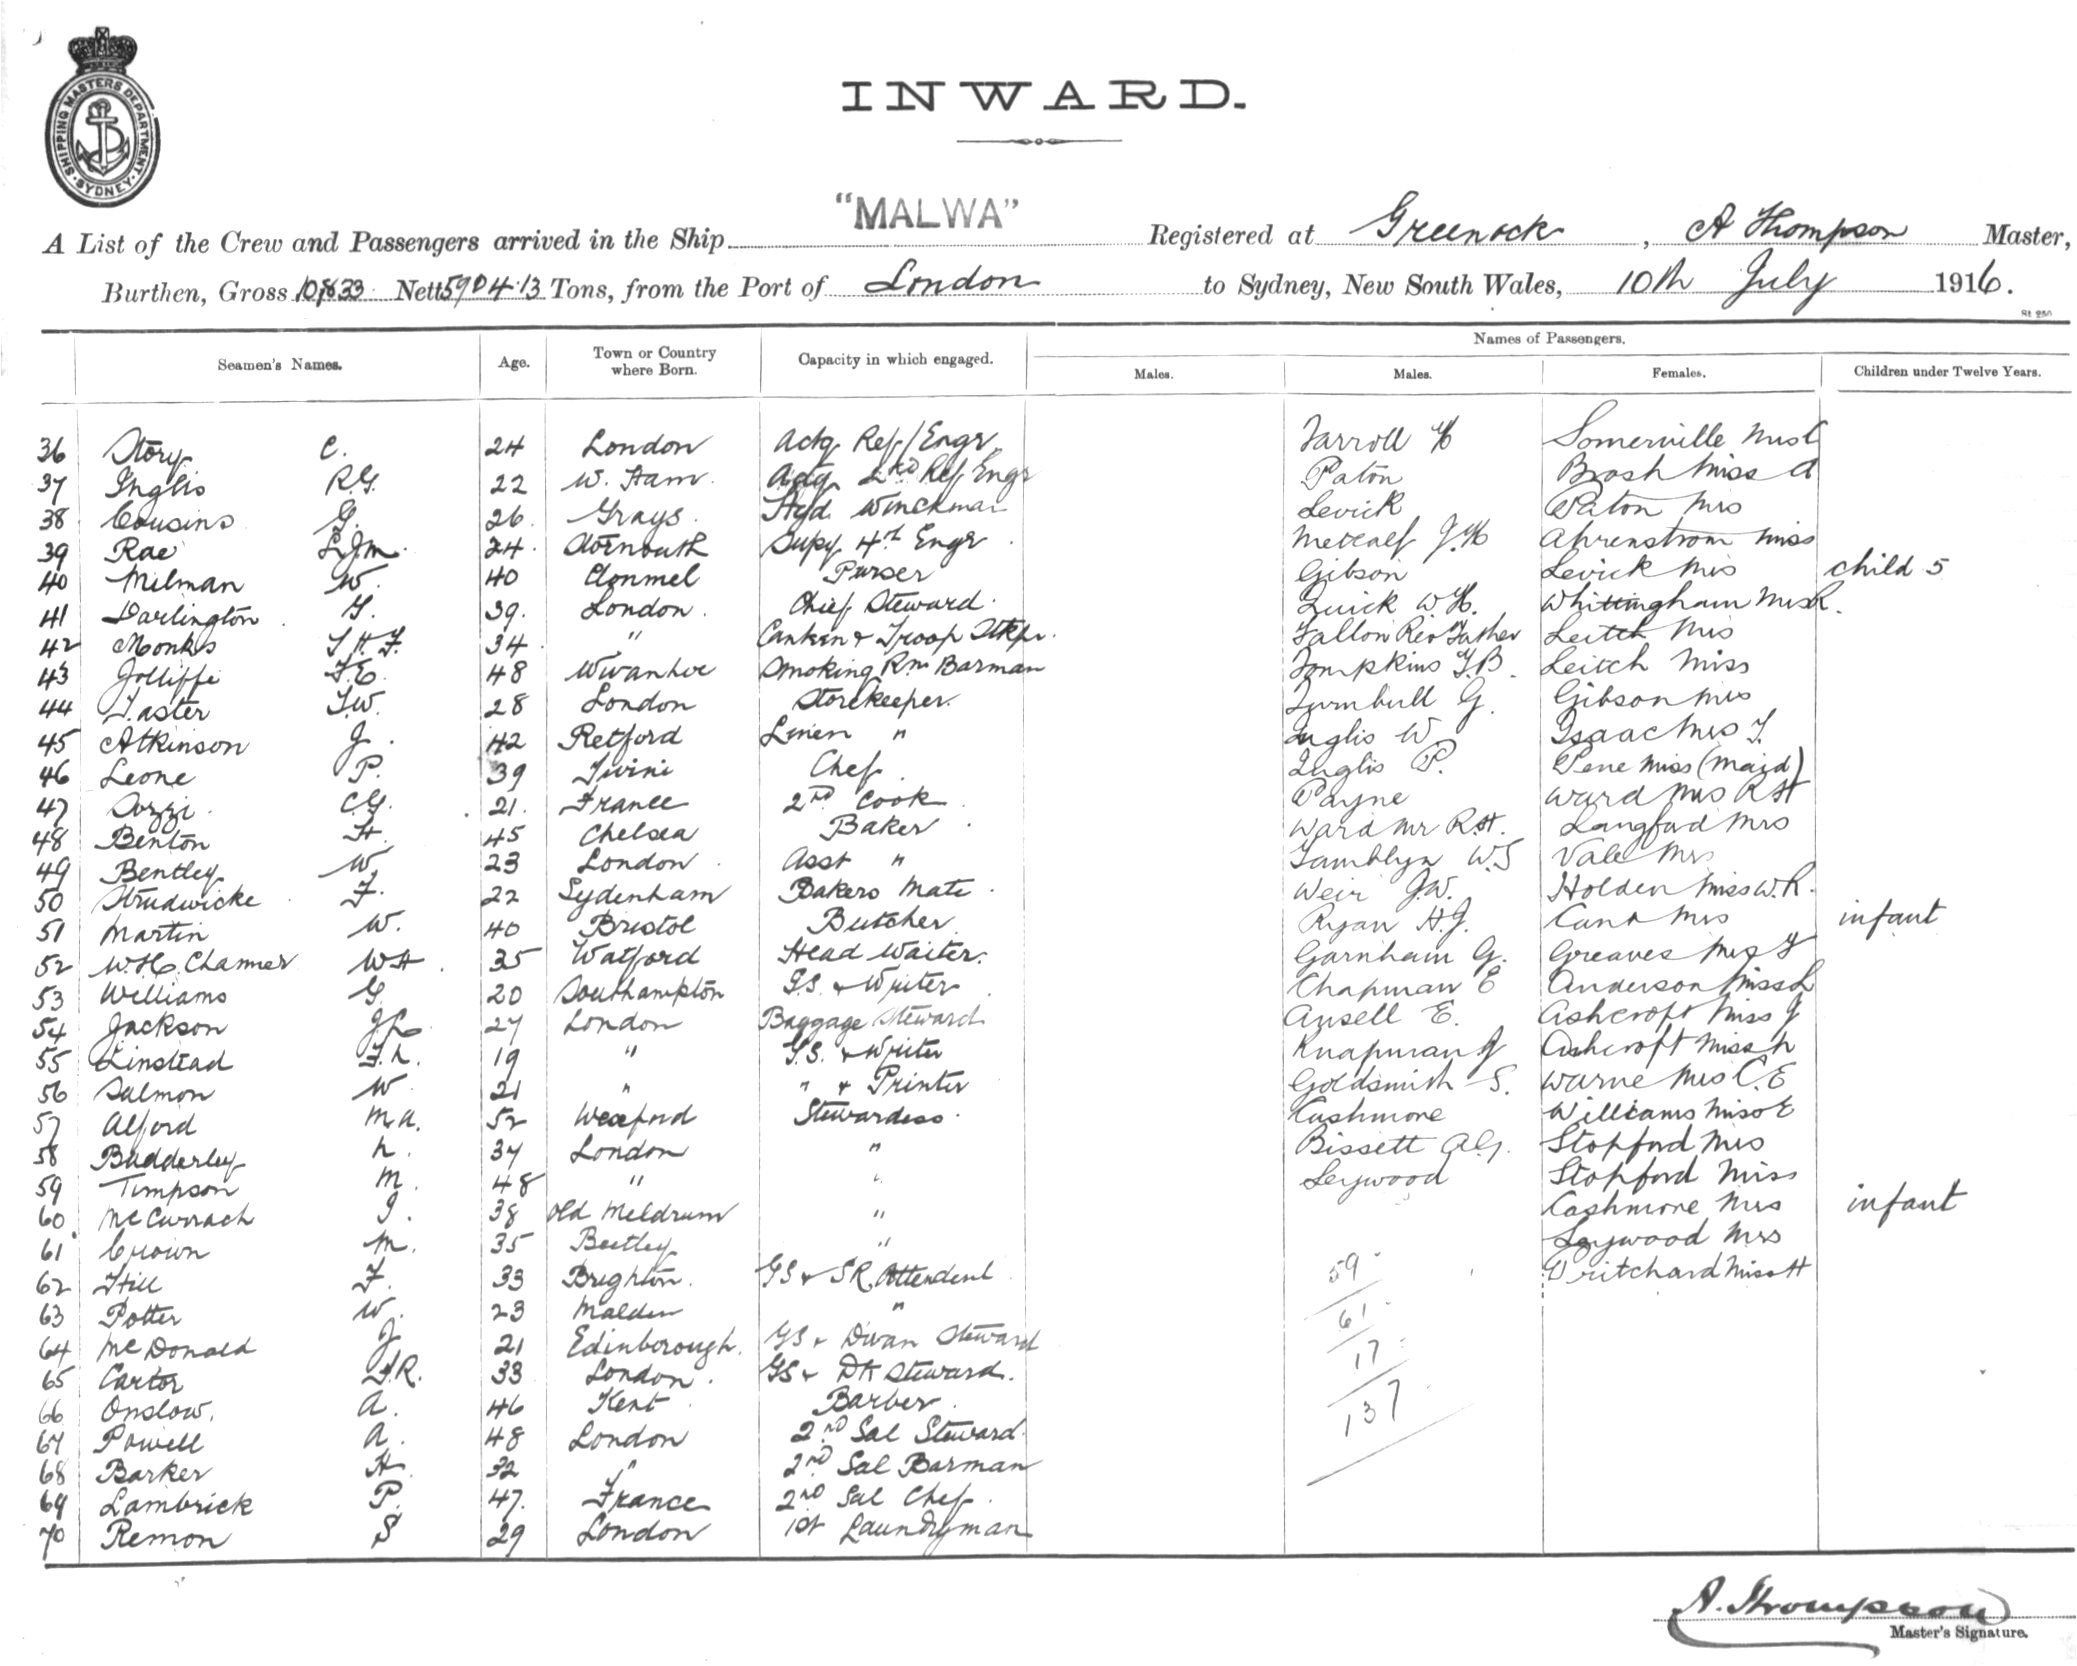 SHIPPING MASTERS DEPARTMENT. SYDNEY.
INWARD.
"MALWA"
A List of the Crew and Passengers arrived in the Ship Registered at Greenock, A Thompson Master,
Burthen, Gross Nett 5904.13 Tons, from the Port of London to Sydney, New South Wales, 10th July 1916.
St 250
Names of Passengers.
Seamen's Names. Age. Town or Country where Born. Capacity in which engaged. Males. Males. Females. Children under Twelve Years.
36 Story C. 24 London Actg Ref/Engr Farroll Somerville Mrs C
37 Inglis R.G. 22 W. Ham Actg 2nd Ref Engr Paton Brash Miss A
38 Cousins G. 26 Grays Hyd. Winchman Levick Paton Mrs
39 Rae L.J.M. 24 Avonmouth Supy 4th Engr Metcalf J.H Ahrenstrom Miss
40 Milman W. 40 Clonmel Purser Gibson Levick Mrs child 5
41 Darlington G. 39 London Chief Steward Quick W.H. Whittingham Mrs R.
42 Monks T.H.F. 34 " Canteen & Troop Stkpr. Fallon Rev Father Leitch Mrs
43 Jolliffe F.E. 48 Wivanhoe Smoking Rm Barman Tompkins F.B. Leitch Miss
44 Taster T.W. 28 London Storekeeper. Turnbull G. Gibson Mrs
45 Atkinson J. 42 Retford Linen " Inglis W Isaac Mrs F.
46 Leone P. 39 Chef Inglis P. Pene Miss (Maid)
47 Sozzi C.G. 21 France 2nd Cook Payne Ward Mrs R H
48 Benton H. 45 Chelsea Baker Ward Mr R.H. Langford Mrs
49 Bentley W 23 London Asst " Tamblyn W.S Vale Mrs
50 Strudwicke F. 22 Sydenham Bakers Mate Weir J.W. Holden Miss W.R.
51 Martin W. 40 Bristol Butcher Ryan H.J. Cant Mrs infant
52 W.H. Channer WH 35 Watford Head Waiter. Garnham G. Greaves Mrs F
53 Williams G. 20 Southampton G.S. & Writer Chapman E Anderson Miss L
54 Jackson J.L. 27 London Baggage Steward Ansell E. Ashcroft Miss J
55 Linstead F.L. 19 " G.S. & Writer Knapman J Ashcroft Miss h
56 Salmon W 21 " " & Printer Goldsmith S. Warne Mrs C.E
57 Alford M.A. 52 Wexford Stewardess Cashmore Williams Miss E
58 Budderley h. 37 London " Bissett A.G. Stopford Mrs
59 Timpson M. 48 " " Leywood Stopford Miss
60 McCurrach I. 38 Old Meldrum " Cashmore Mrs infant
61 Crown M. 35 Beetley " Leywood Mrs
62 Hill F. 33 Brighton G S & S R Attendent 59 Pritchard Miss H
63 Potter W. 23 Malden " 61
64 McDonald J 21 Edinborough G S & Divan Steward 17
65 Carter F.R. 33 London G S & Dk Steward. 137
66 Onslow. A. 46 Kent Barber
67 Powell A. 48 London 2nd Sal Steward
68 Barker H 32 " 2nd Sal Barman
69 Lambrick P. 47. France 2nd Sal Chef
70 Remon S 29 London 1st Laundryman
A. Thompson
Master's Signature.